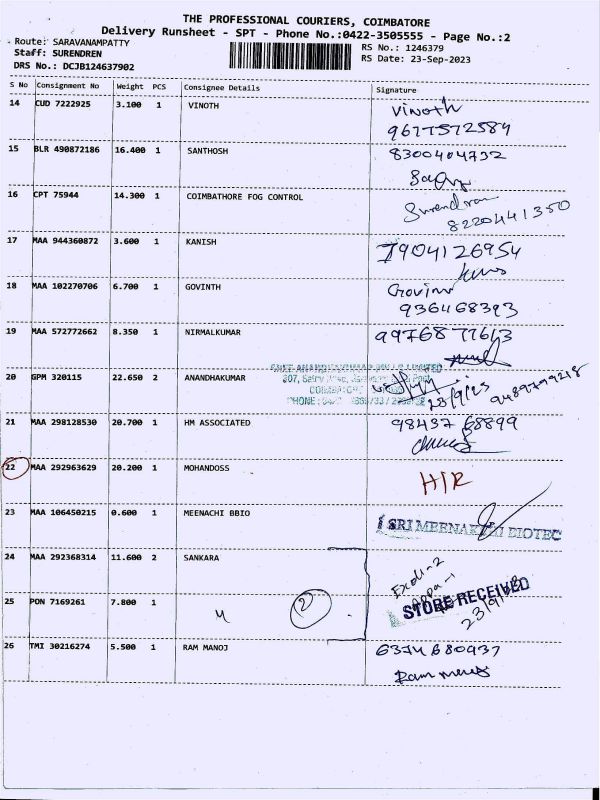 THE PROFESSIONAL COURIERS, COIMBATORE
Delivery Runsheet - SPT - Phone No.:0422-3505555 - Page No.:2
Route: SARAVANAMPATTY
Staff: SURENDREN
DRS No.: DCJB124637902
RS No.: 1246379
RS Date: 23-Sep-2023
S No Consignment No Weight PCS Consignee Details Signature
14 CUD 7222925 3.100 1 VINOTH Vinoth
9677572589
15 BLR 490872186 16.400 1 SANTHOSH 8300404732
16 CPT 75944 14.300 1 COIMBATHORE FOG CONTROL Surendran
8220441350
17 MAA 944360872 3.600 1 KANISH 7904126954
18 MAA 102270706 6.700 1 GOVINTH Govinr
936468393
19 MAA 572772662 8.350 1 NIRMALKUMAR 9976877613
20 GPM 320115 22.650 2 ANANDHAKUMAR 23/9/23 9489799218
21 MAA 298128530 20.700 1 HM ASSOCIATED 98437 68899
22 MAA 292963629 20.200 1 MOHANDOSS H/R
23 MAA 106450215 0.600 1 MEENACHI BBIO SRI MEENAKSHI BIOTEC
24 MAA 292368314 11.600 2 SANKARA
25 PON 7169261 7.800 1 " 2 STORE RECEIVED
26 TMI 30216274 5.500 1 RAM MANOJ 6374680937
Ram manoj